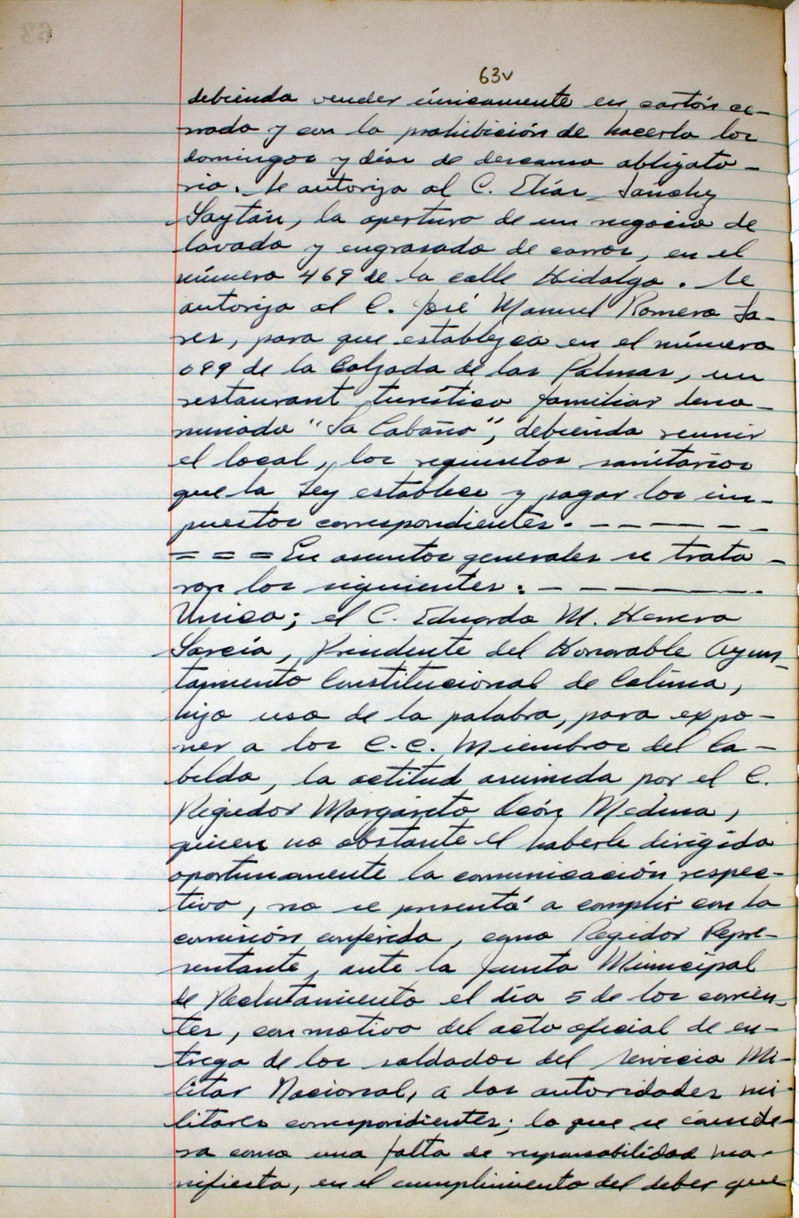 63v
debiendo vender únicamente en cartón ce-
rrado y con la prohibición de hacerlo los
domingos y días de descanso obligato-
rio. Se autoriza al C. Elías Sánchez
Gaytán, la apertura de un negocio de
lavado y engrasado de carros, en el
número 469 de la calle Hidalgo. Se
autoriza al C. José Manuel Romero La-
res, para que establezca en el número
099 de la Calzada de las Palmas, un
restaurant turístico familiar deno-
minado "La Cabaña", debiendo reunir
el local, los requisitos sanitarios
que la Ley establece y pagar los im-
puestos correspondientes. - - - - - -
= = = En asuntos generales se trata-
ron los siguientes: - - - - - - -
Unico; el C. Eduardo M. Herrera
García, Presidente del Honorable Ayun-
tamiento Constitucional de Colima,
hizo uso de la palabra, para expo-
ner a los C.C. Miembros del Ca-
bildo, la actitud asumida por el C.
Regidor Margarito León Medina,
quien no obstante el haberle dirigido
oportunamente la comunicación respec-
tiva, no se presentó a cumplir con la
comisión conferida, como Regidor Repre-
sentante, ante la Junta Municipal
de Reclutamiento el día 5 de los corrien-
tes, con motivo del acto oficial de en-
trega de los soldados del Servicio Mi-
litar Nacional, a las autoridades mi-
litares correspondientes; lo que se conside-
ra como una falta de responsabilidad ma-
nifiesta, en el cumplimiento del deber que